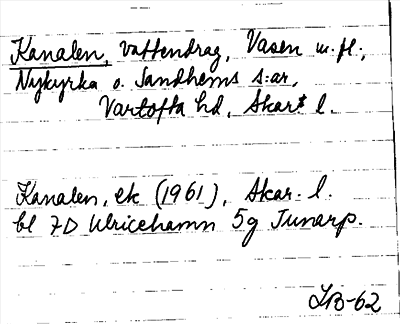 Kanalen, vattendrag, Vasen m. fl.,
Nykyrka o. Sandhems s:ar,
Vartofta hd, Skar. l.
Kanalen, ek (1961), Skar. l.
bl 7D Ulricehamn 5g Tunarp.
LB-62